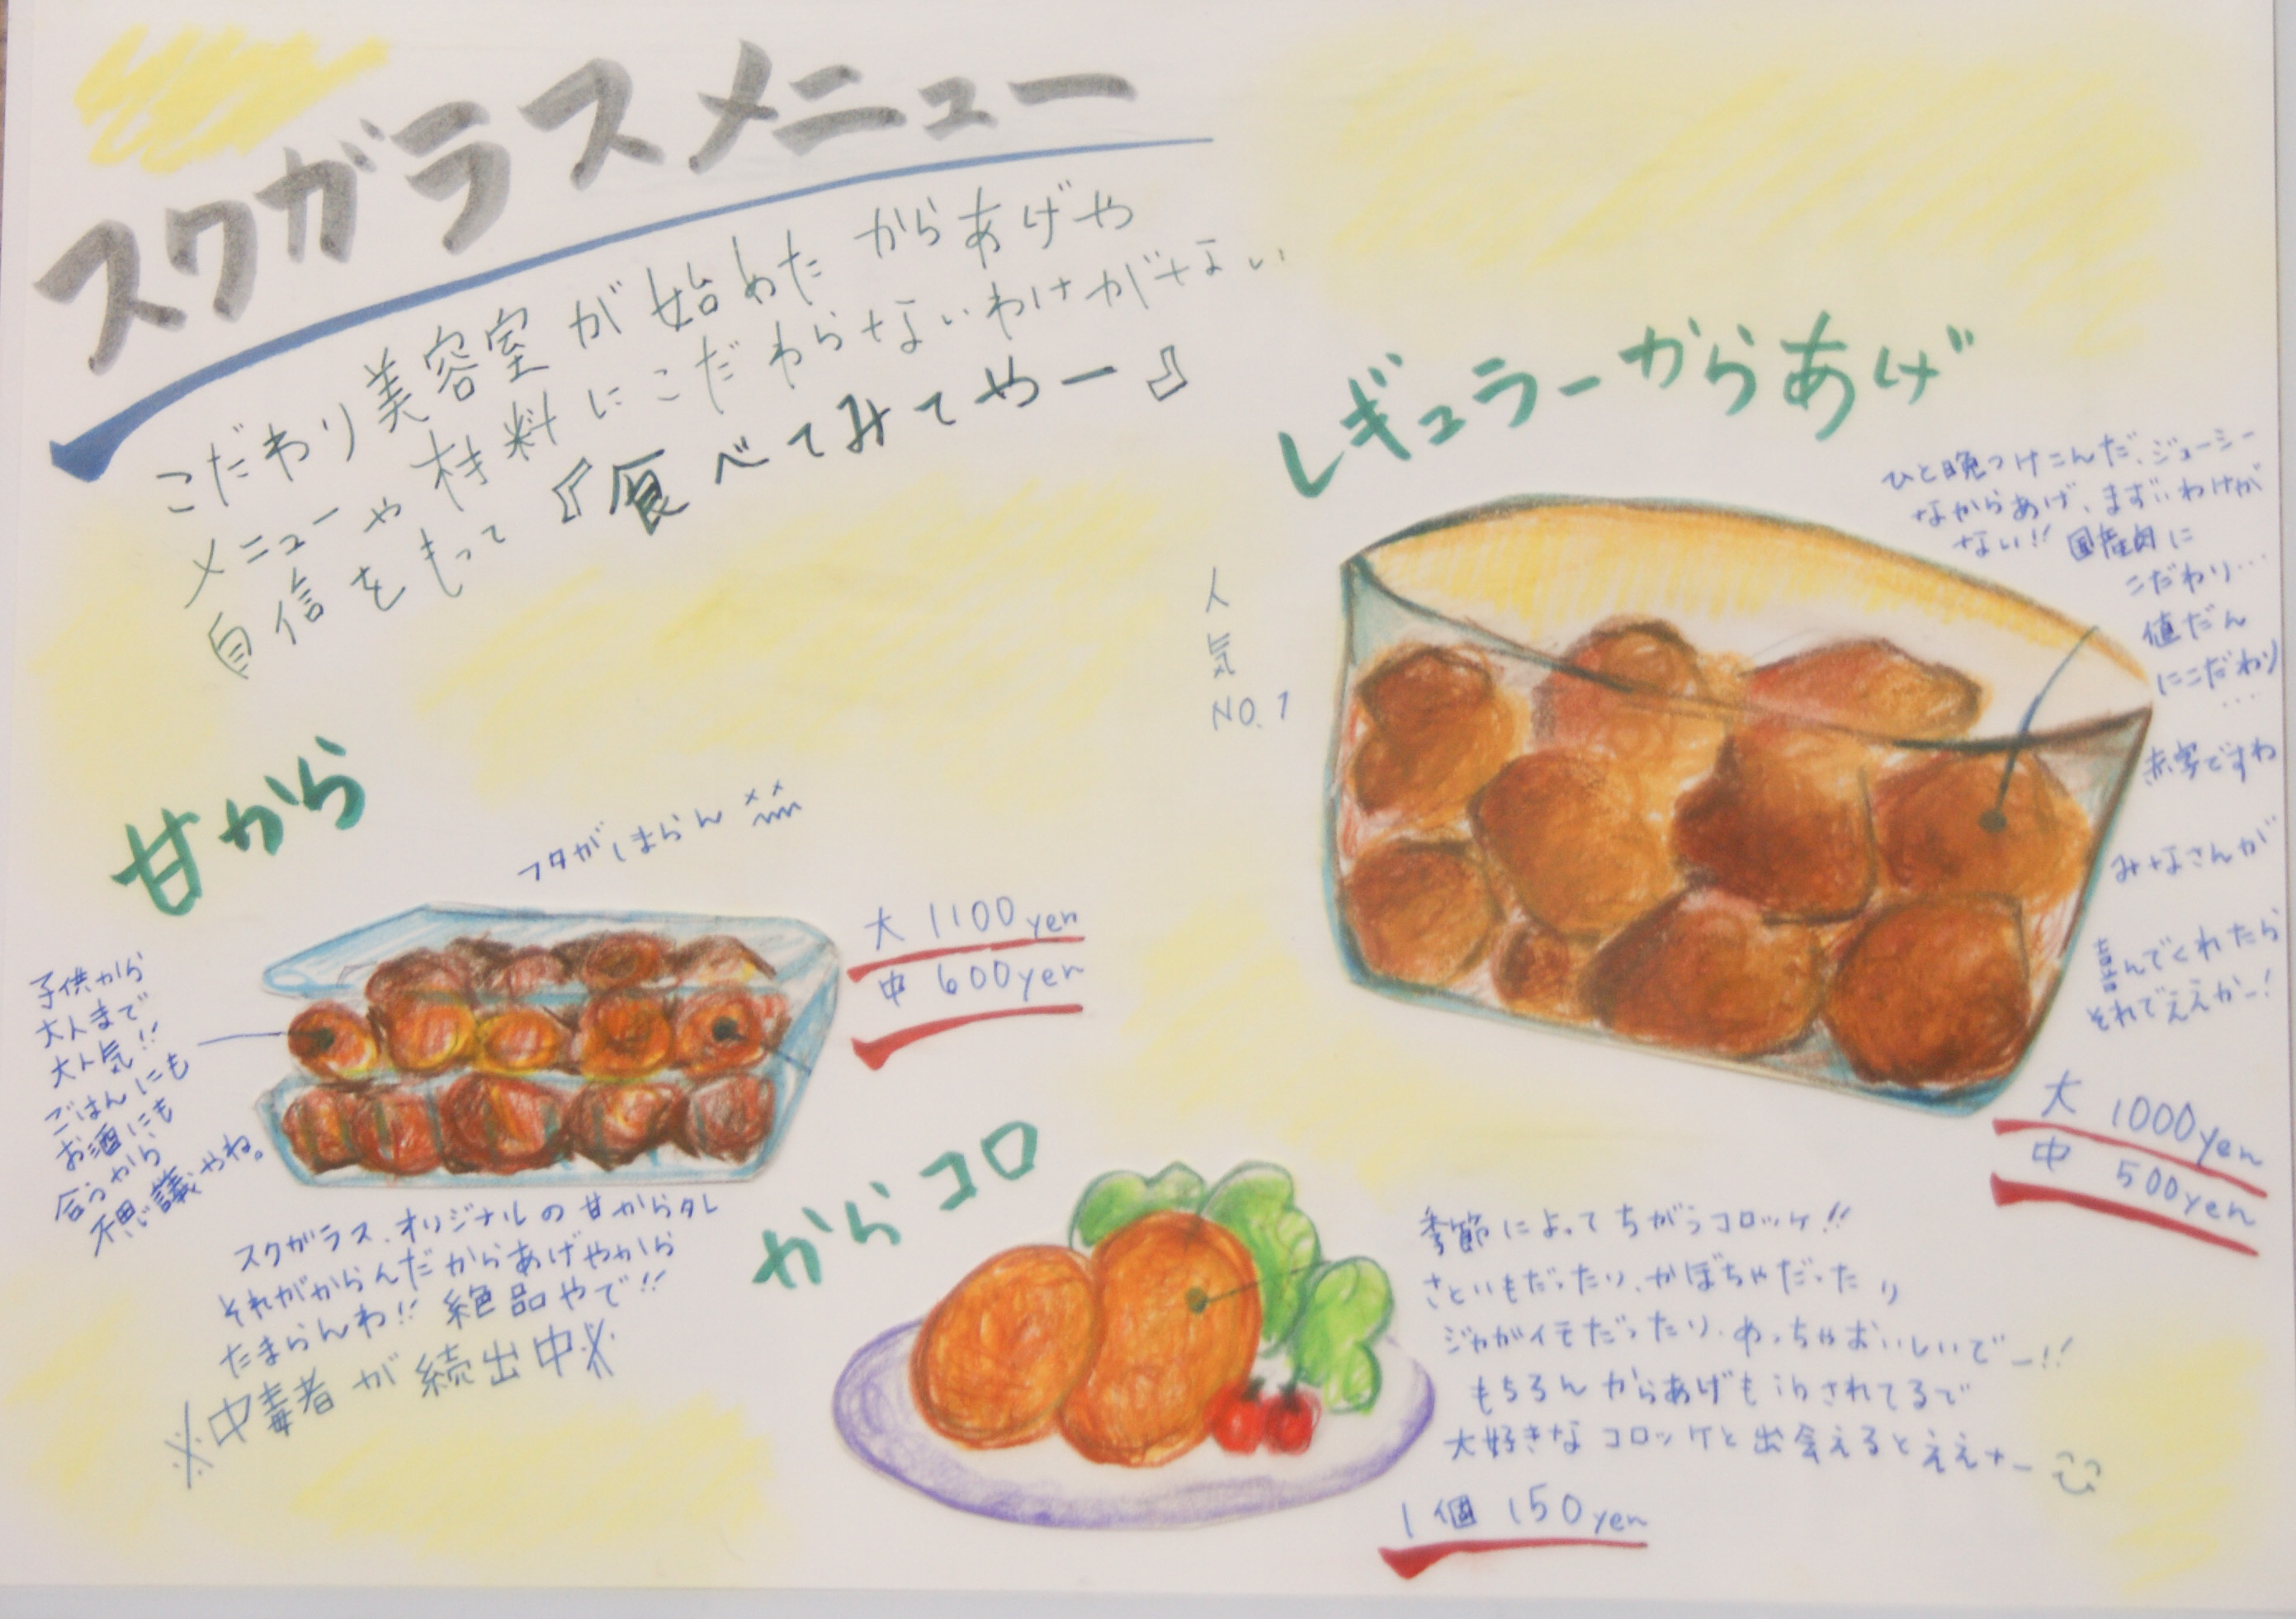 スクガラスメニュー
こだわり美容室が始めたからあげや
メニューや材料にこだわらないわけがない
自信をもって『食べてみてやー』
レギュラーからあげ
人気NO.1
ひと晩つけこんだ、ジューシー
なからあげ、まずいわけが
ない!! 国産肉に
こだわり…
値だん
にこだわり
…
赤字ですわ
みなさんが
喜んでくれたら
それでええかー!
大 1000yen
中 500yen
甘から
フタがしまらん
大 1100yen
中 600yen
子供から
大人まで
大人気!!
ごはんにも
お酒にも
合うから
不思議やね。
スクガラス、オリジナルの甘からタレ
それがからんだからあげやから
たまらんわ!! 絶品やで!!
※中毒者が続出中※
からコロ
季節によってちがうコロッケ!!
さといもだったり、かぼちゃだったり
ジャガイモだったり、めっちゃおいしいでー!!
もちろんからあげもinされてるで
大好きなコロッケと出会えるとええナー
1個 150yen